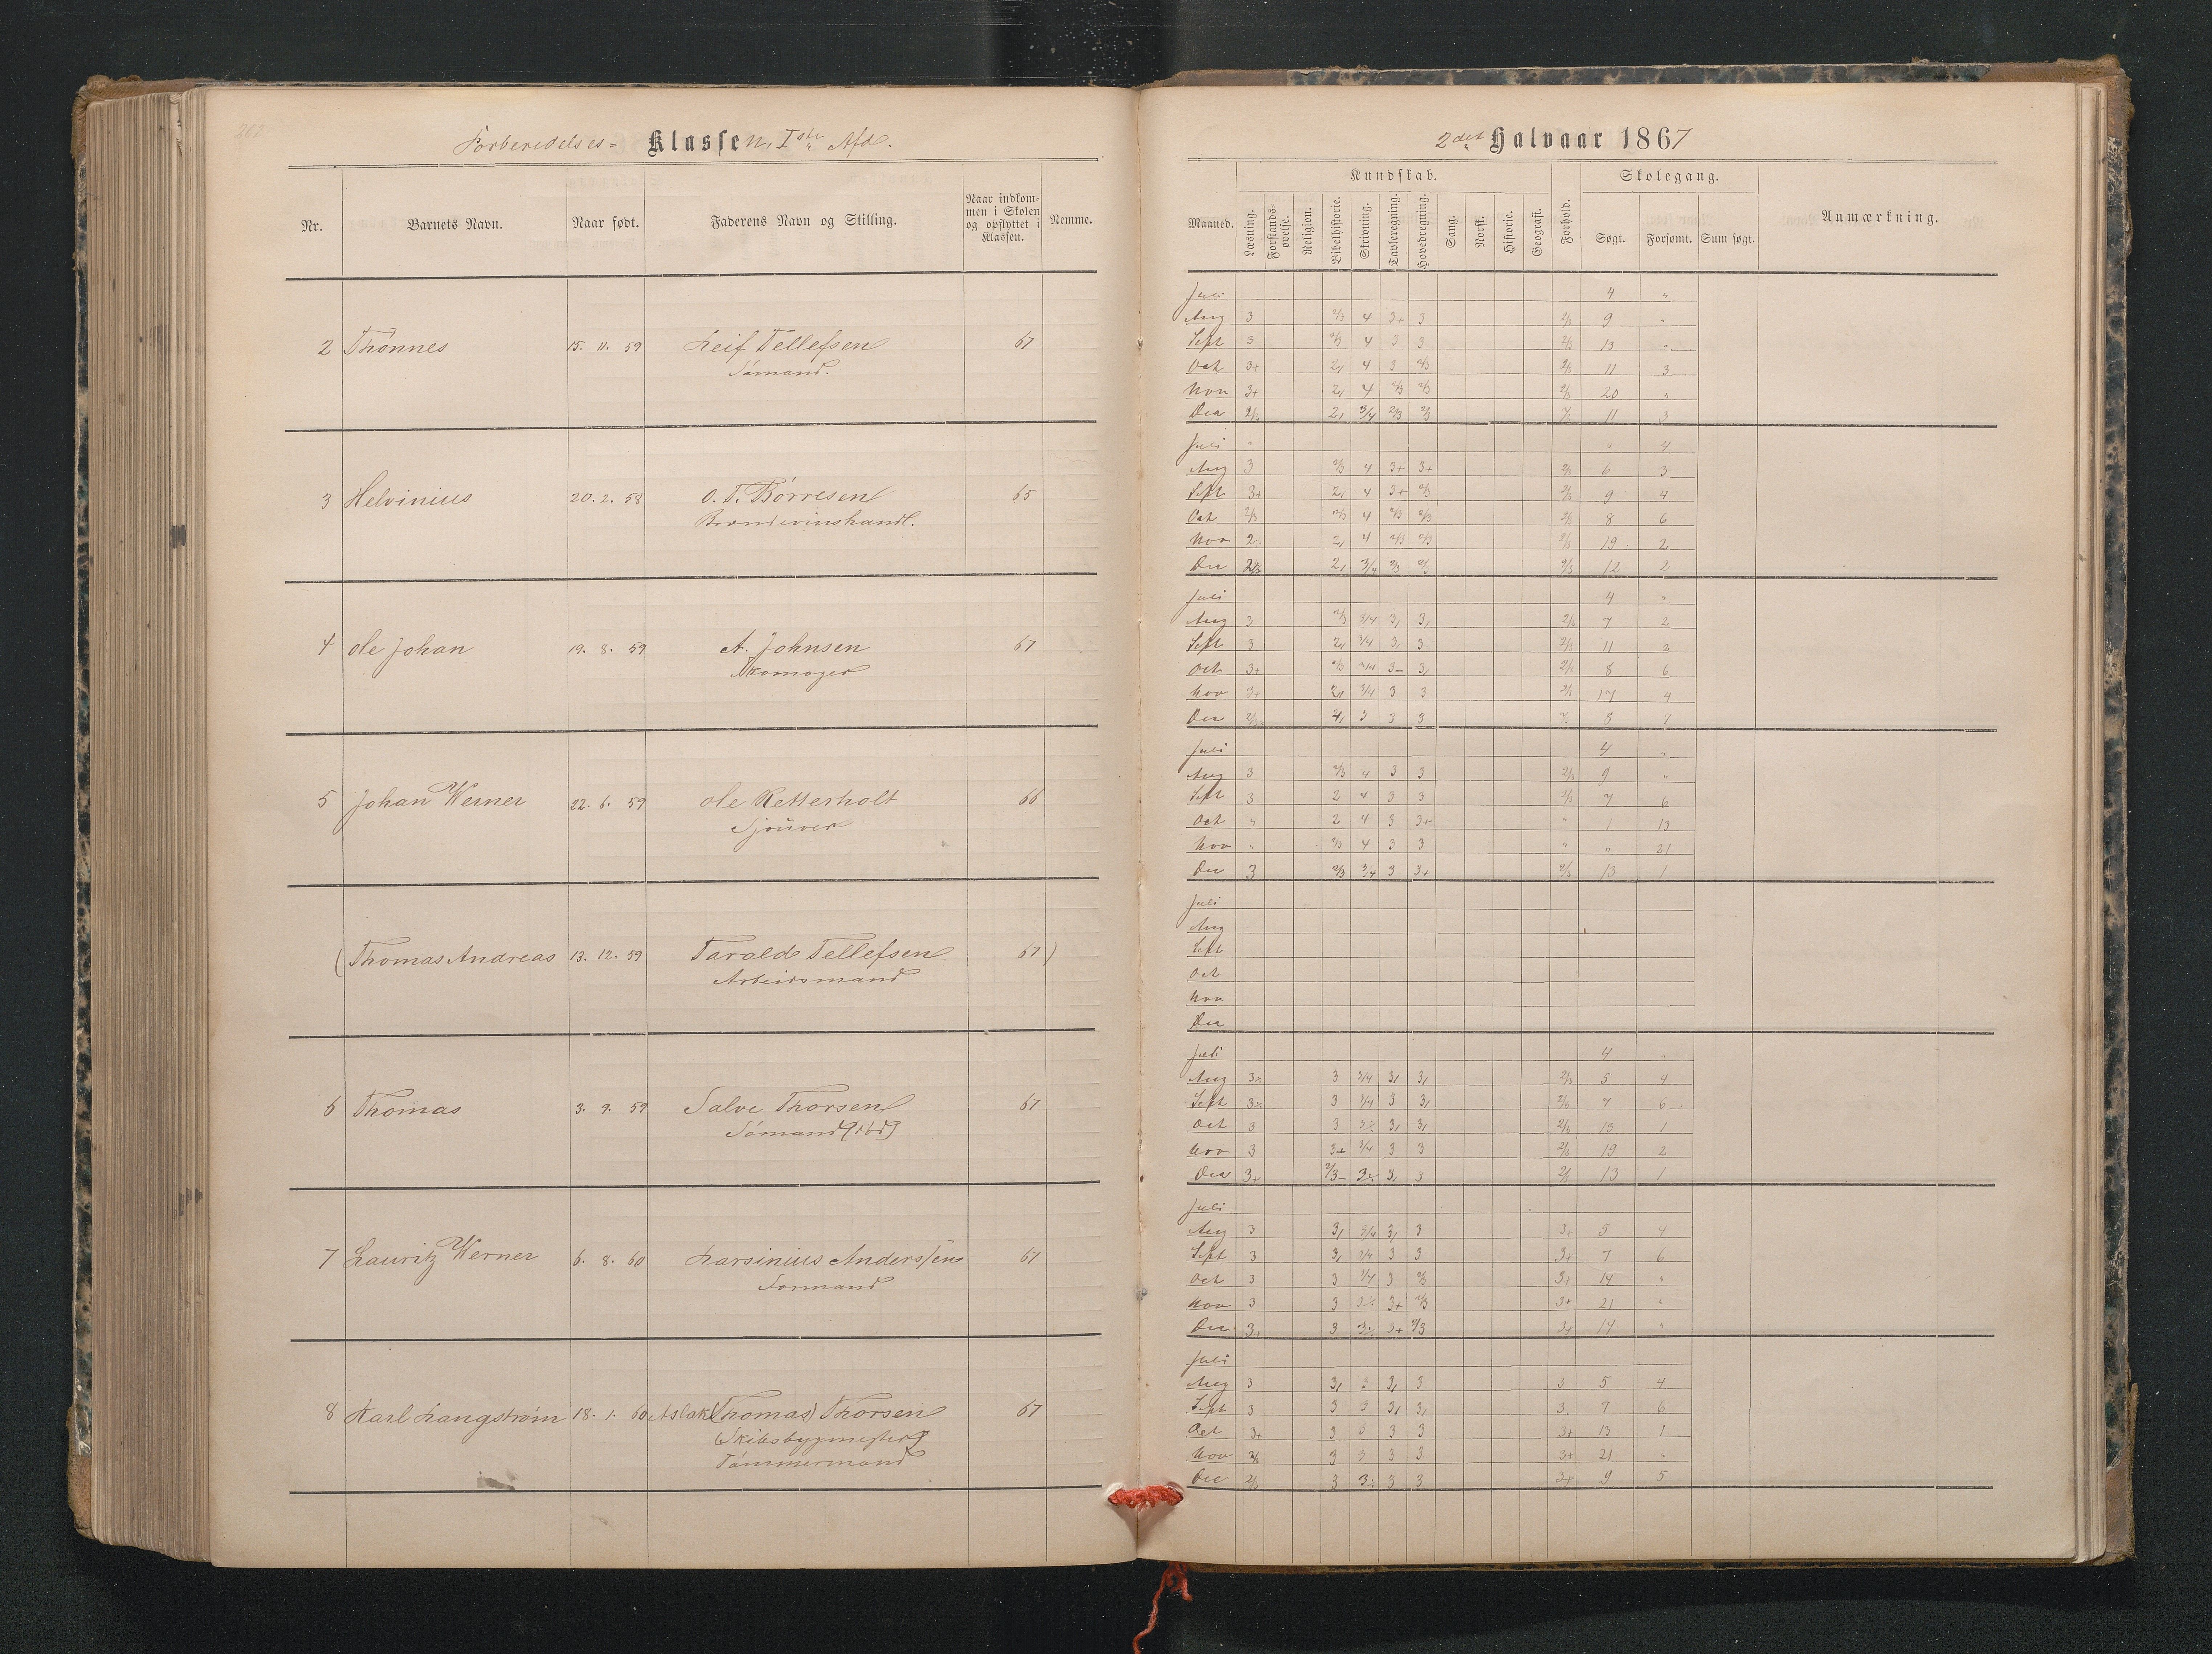 262
Forberedelses- Klassen, Iste Afd.
Nr. Barnets Navn. Naar født. Faderens Navn og Stilling. Naar indkommen i Skolen og opflyttet i Klassen. Nemme.
2 Thönnes 15. 11. 59 Leif Tellefsen 67
Sömand.
3 Helvinius 20. 2. 58 O. T. Börresen 65
Brændevinshandl.
4 Ole Johan 19. 8. 59 A. Johnsen 67
Skomager
5 Johan Werner 22. 6. 59 Ole Retterholt 66
Sjouer
(Thomas Andreas 13. 12. 59 Tarald Tellefsen 67)
Arbeidsmand
6 Thomas 3. 9. 59 Salve Thorsen 67
Sömand
7 Lauritz Werner 6. 8. 60 Larsinius Anderssen 67
Sömand
8 Karl Langström 18. 1. 60 Aslak (Thomas) Thorsen 67
(Skibsbygmester)
Tömmermand
2det Halvaar 1867
Kundskab. Skolegang.
Maaned. Læsning. Forstandsøvelse. Religion. Bibelhistorie. Skrivning. Tavleregning. Hovedregning. Sang. Norsk. Historie. Geografi. Forhold. Søgt. Forsømt. Sum søgt. Anmærkning.
Juli 4 "
Aug 3 2/3 4 3+ 3 2/3 9 "
Sept 3 2/3 4 3 3 2/3 13 "
Oct 3+ 4 3 2/3 2/3 11 3
Nov 3+ 4 2/3 2/3 2/3 20 "
Dec 3/4 2/3 2/3 11 3
Juli " " 4
Aug 3 2/3 4 3+ 3+ 2/3 6 3
Sept 3+ 4 3+ 2/3 2/3 9 4
Oct 2/3 2/3 4 2/3 2/3 2/3 8 6
Nov 4 2/3 2/3 2/3 19 2
Dec 3/4 2/3 2/3 12 2
Juli 4 "
Aug 3 2/3 3/4 7 2
Sept 3 3/4 3 2/3 11 2
Oct 3+ 2/3 3/4 3- 8 6
Nov 3+ 3/4 3 3 17 4
Dec 3 3 3 8 7
Juli 4 "
Aug 3 2/3 4 3 3 2/3 9 "
Sept 3 2 4 3 3 2/3 7 6
Oct " 2 4 3 3+ " 1 13
Nov " 2/3 4 3 3 " " 21
Dec 3 2/3 3/4 3 3+ 2/3 13 1
Juli
Aug
Sept
Oct
Nov
Dec
Juli 4 "
Aug 3 3/4 2/3 5 4
Sept 3 3/4 3 7 6
Oct 3 3 13 1
Nov 3 3+ 3/4 3 3 19 2
Dec 3+ 3 13 1
Juli
Aug 3 3/4 3 3+ 5 4
Sept 3 3/4 3 3 3+ 7 6
Oct 3 3 3/4 3 2/3 3+ 14 "
Nov 3 3 3+ 2/3 3+ 21 "
Dec 3+ 3 3+ 2/3 3+ 14 "
Juli
Aug 3 3 3 3 5 4
Sept 3 3 3 3 7 6
Oct 3+ 3 3 3 3 3+ 13 1
Nov 3 3 3 3 3+ 21 "
Dec 2/3 3 3 3 3+ 9 5